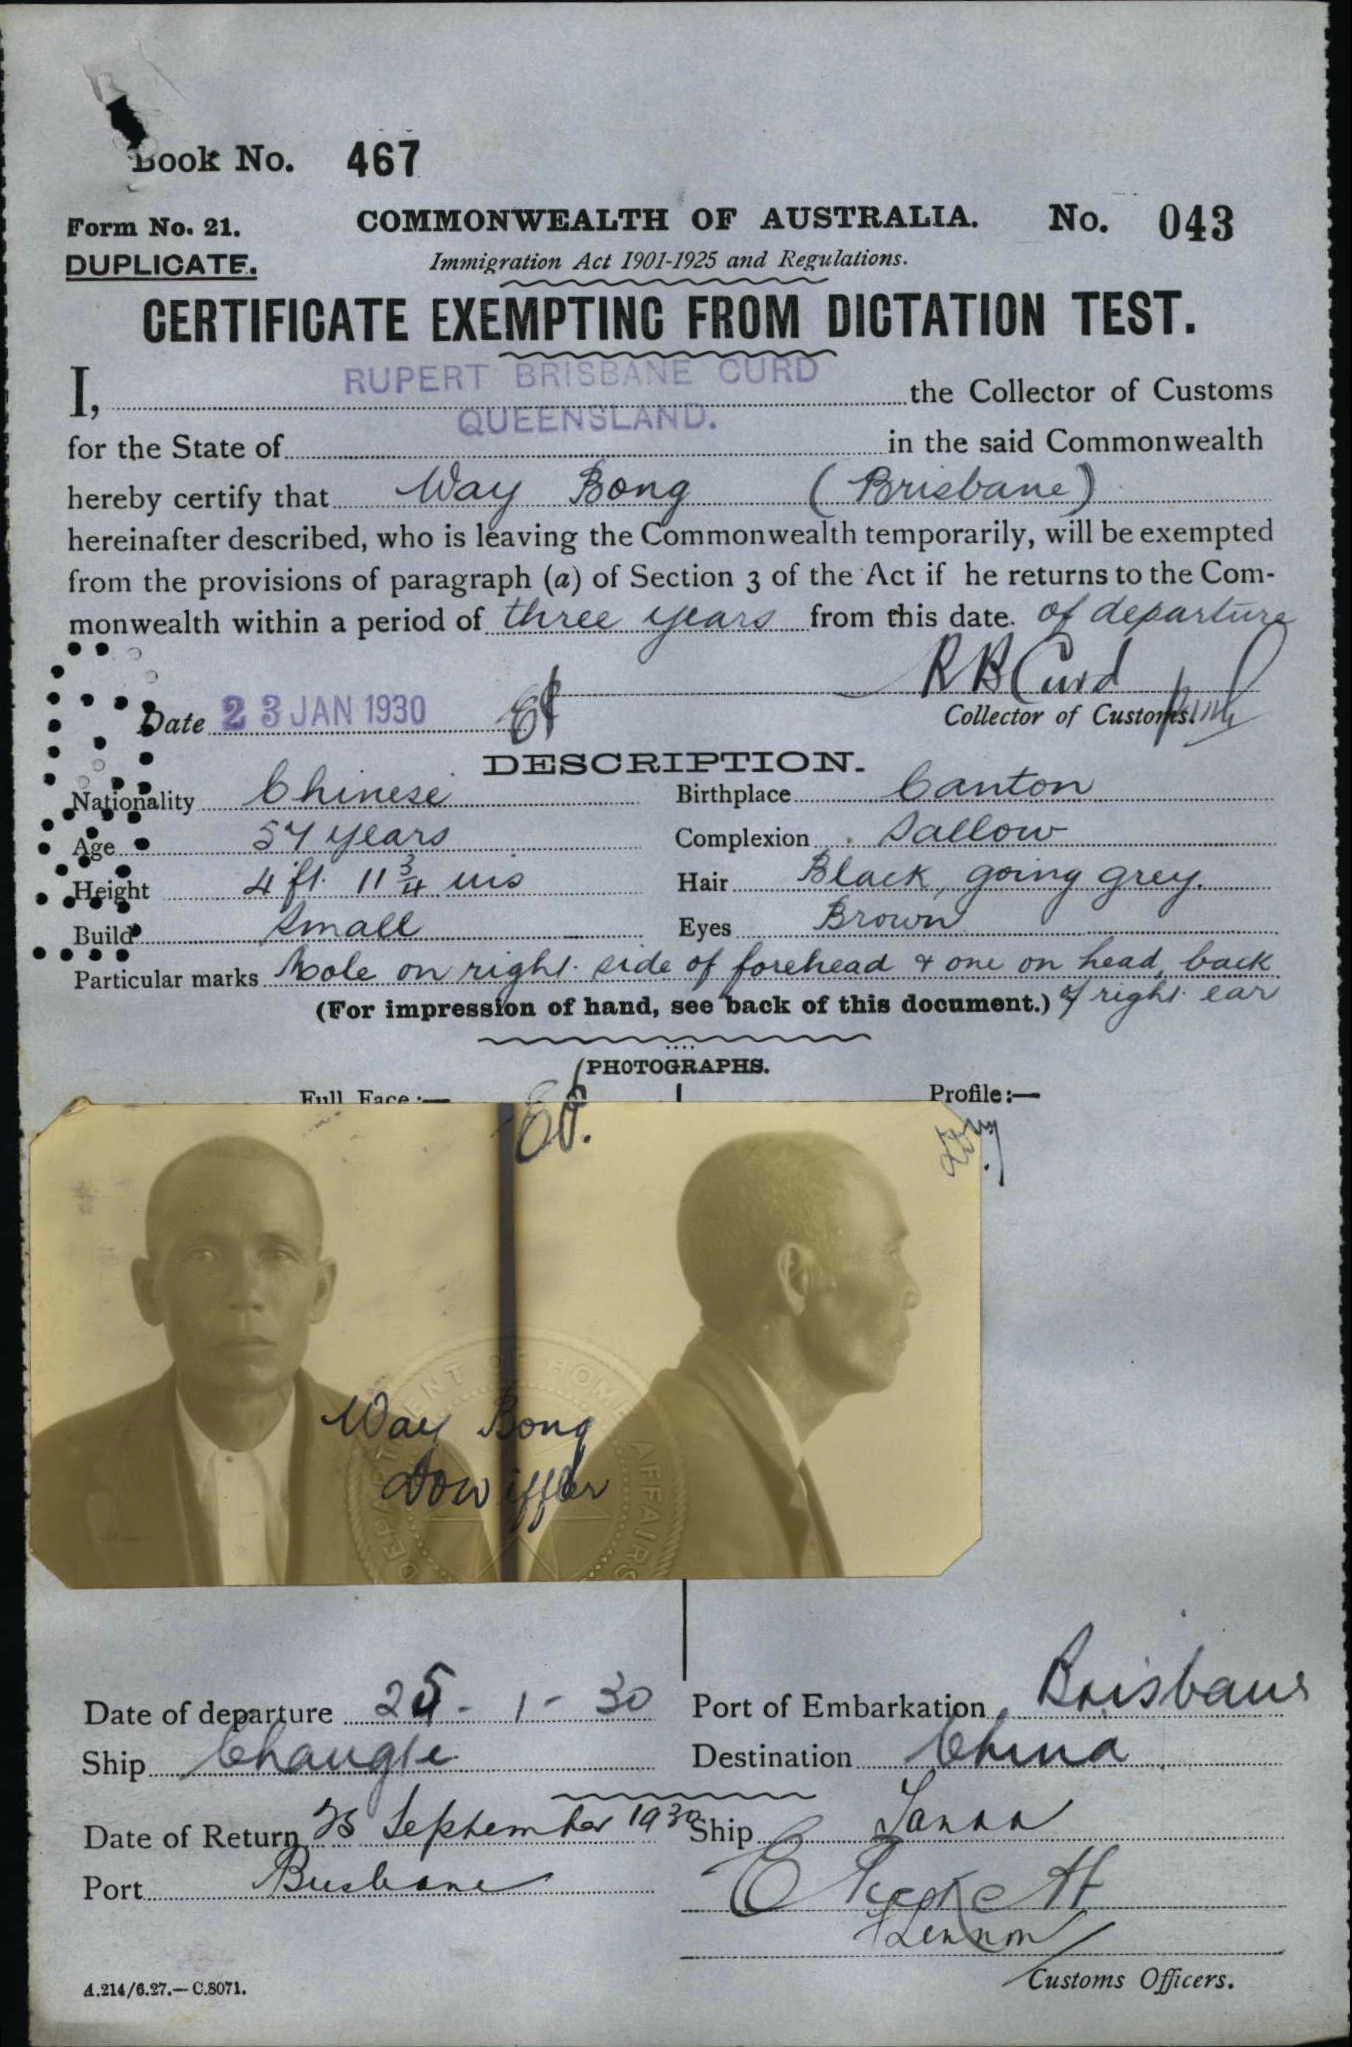 Book No. 467
Form No. 21. COMMONWEALTH OF AUSTRALIA. No. 043
DUPLICATE. Immigration Act 1901-1925 and Regulations.
CERTIFICATE EXEMPTING FROM DICTATION TEST.
I, RUPERT BRISBANE CURD the Collector of Customs
for the State of QUEENSLAND. in the said Commonwealth
hereby certify that Way Bong (Brisbane)
hereinafter described, who is leaving the Commonwealth temporarily, will be exempted
from the provisions of paragraph (a) of Section 3 of the Act if he returns to the Com-
monwealth within a period of three years from this date of departure
R B Curd
Date 23 JAN 1930 Collector of Customs.
DESCRIPTION.
Nationality Chinese Birthplace Canton
Age 57 years Complexion Sallow
Height 4 ft. 11 3/4 ins Hair Black, going grey.
Build Small Eyes Brown
Particular marks Mole on right side of forehead & one on head, back
(For impression of hand, see back of this document.) of right ear
PHOTOGRAPHS.
Full Face:— Profile:—
DEPARTMENT OF HOME AFFAIRS
Way Bong
Date of departure 25-1-30 Port of Embarkation Brisbane
Ship Changte Destination China
Date of Return 23 September 1930 Ship Tanda
Port Brisbane
Lennon
Customs Officers.
A.214/6.27.—C.8071.